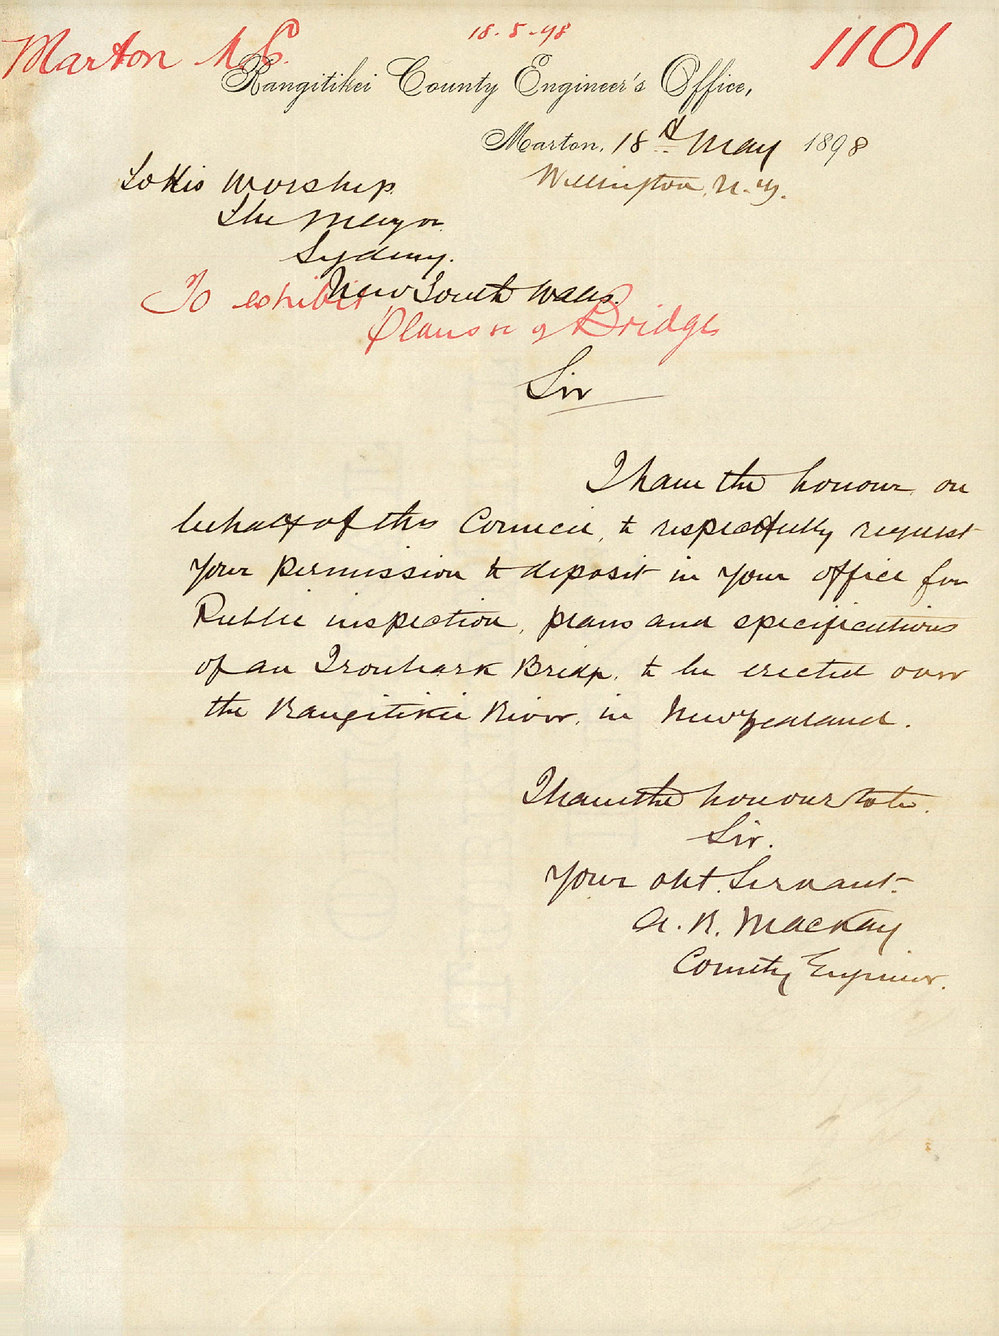 18.5.98
Marton N.Z. 1101
Rangitikei County Engineer's Office,
Marton, 18th May 1898
Wellington, N.Z.
To His Worship
The Mayor
Sydney.
New South Wales.
To exhibit
Plans of Bridge
Sir
I have the honour on
behalf of this Council, to respectfully request
your permission to deposit in your office for
Public inspection, plans and specifications
of an Ironbark Bridge, to be erected over
the Rangitikei River, in New Zealand.
I have the honour to be.
Sir.
Your obt. Servant.
A. R. Mackay
County Engineer.